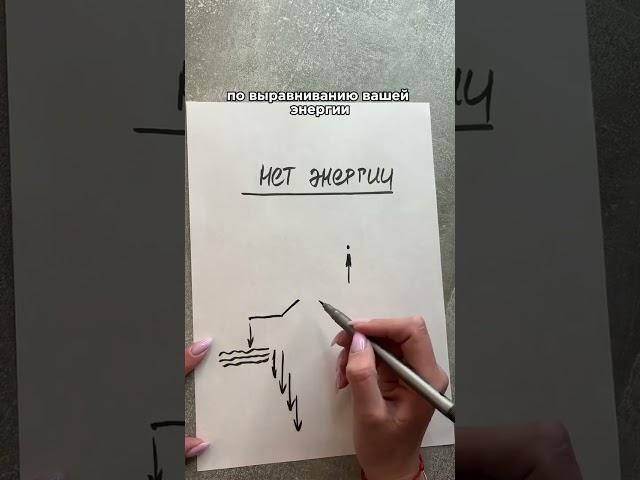 по выравниванию вашей
энергии
НЕТ ЭНЕРГИИ